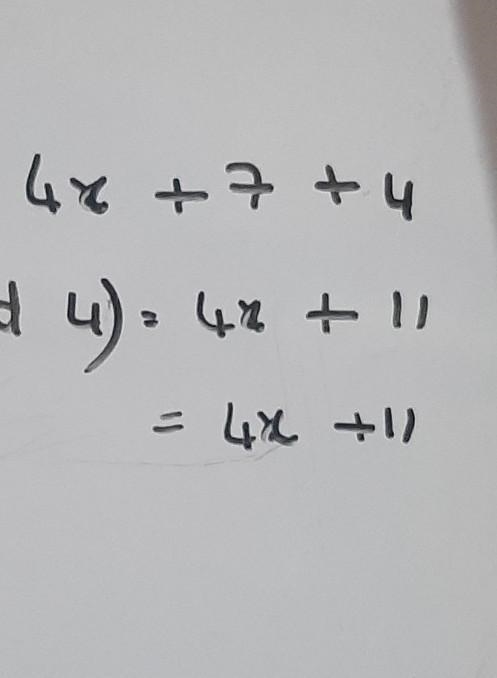 4x + 7 + 4
d 4) = 4x + 11
= 4x + 11